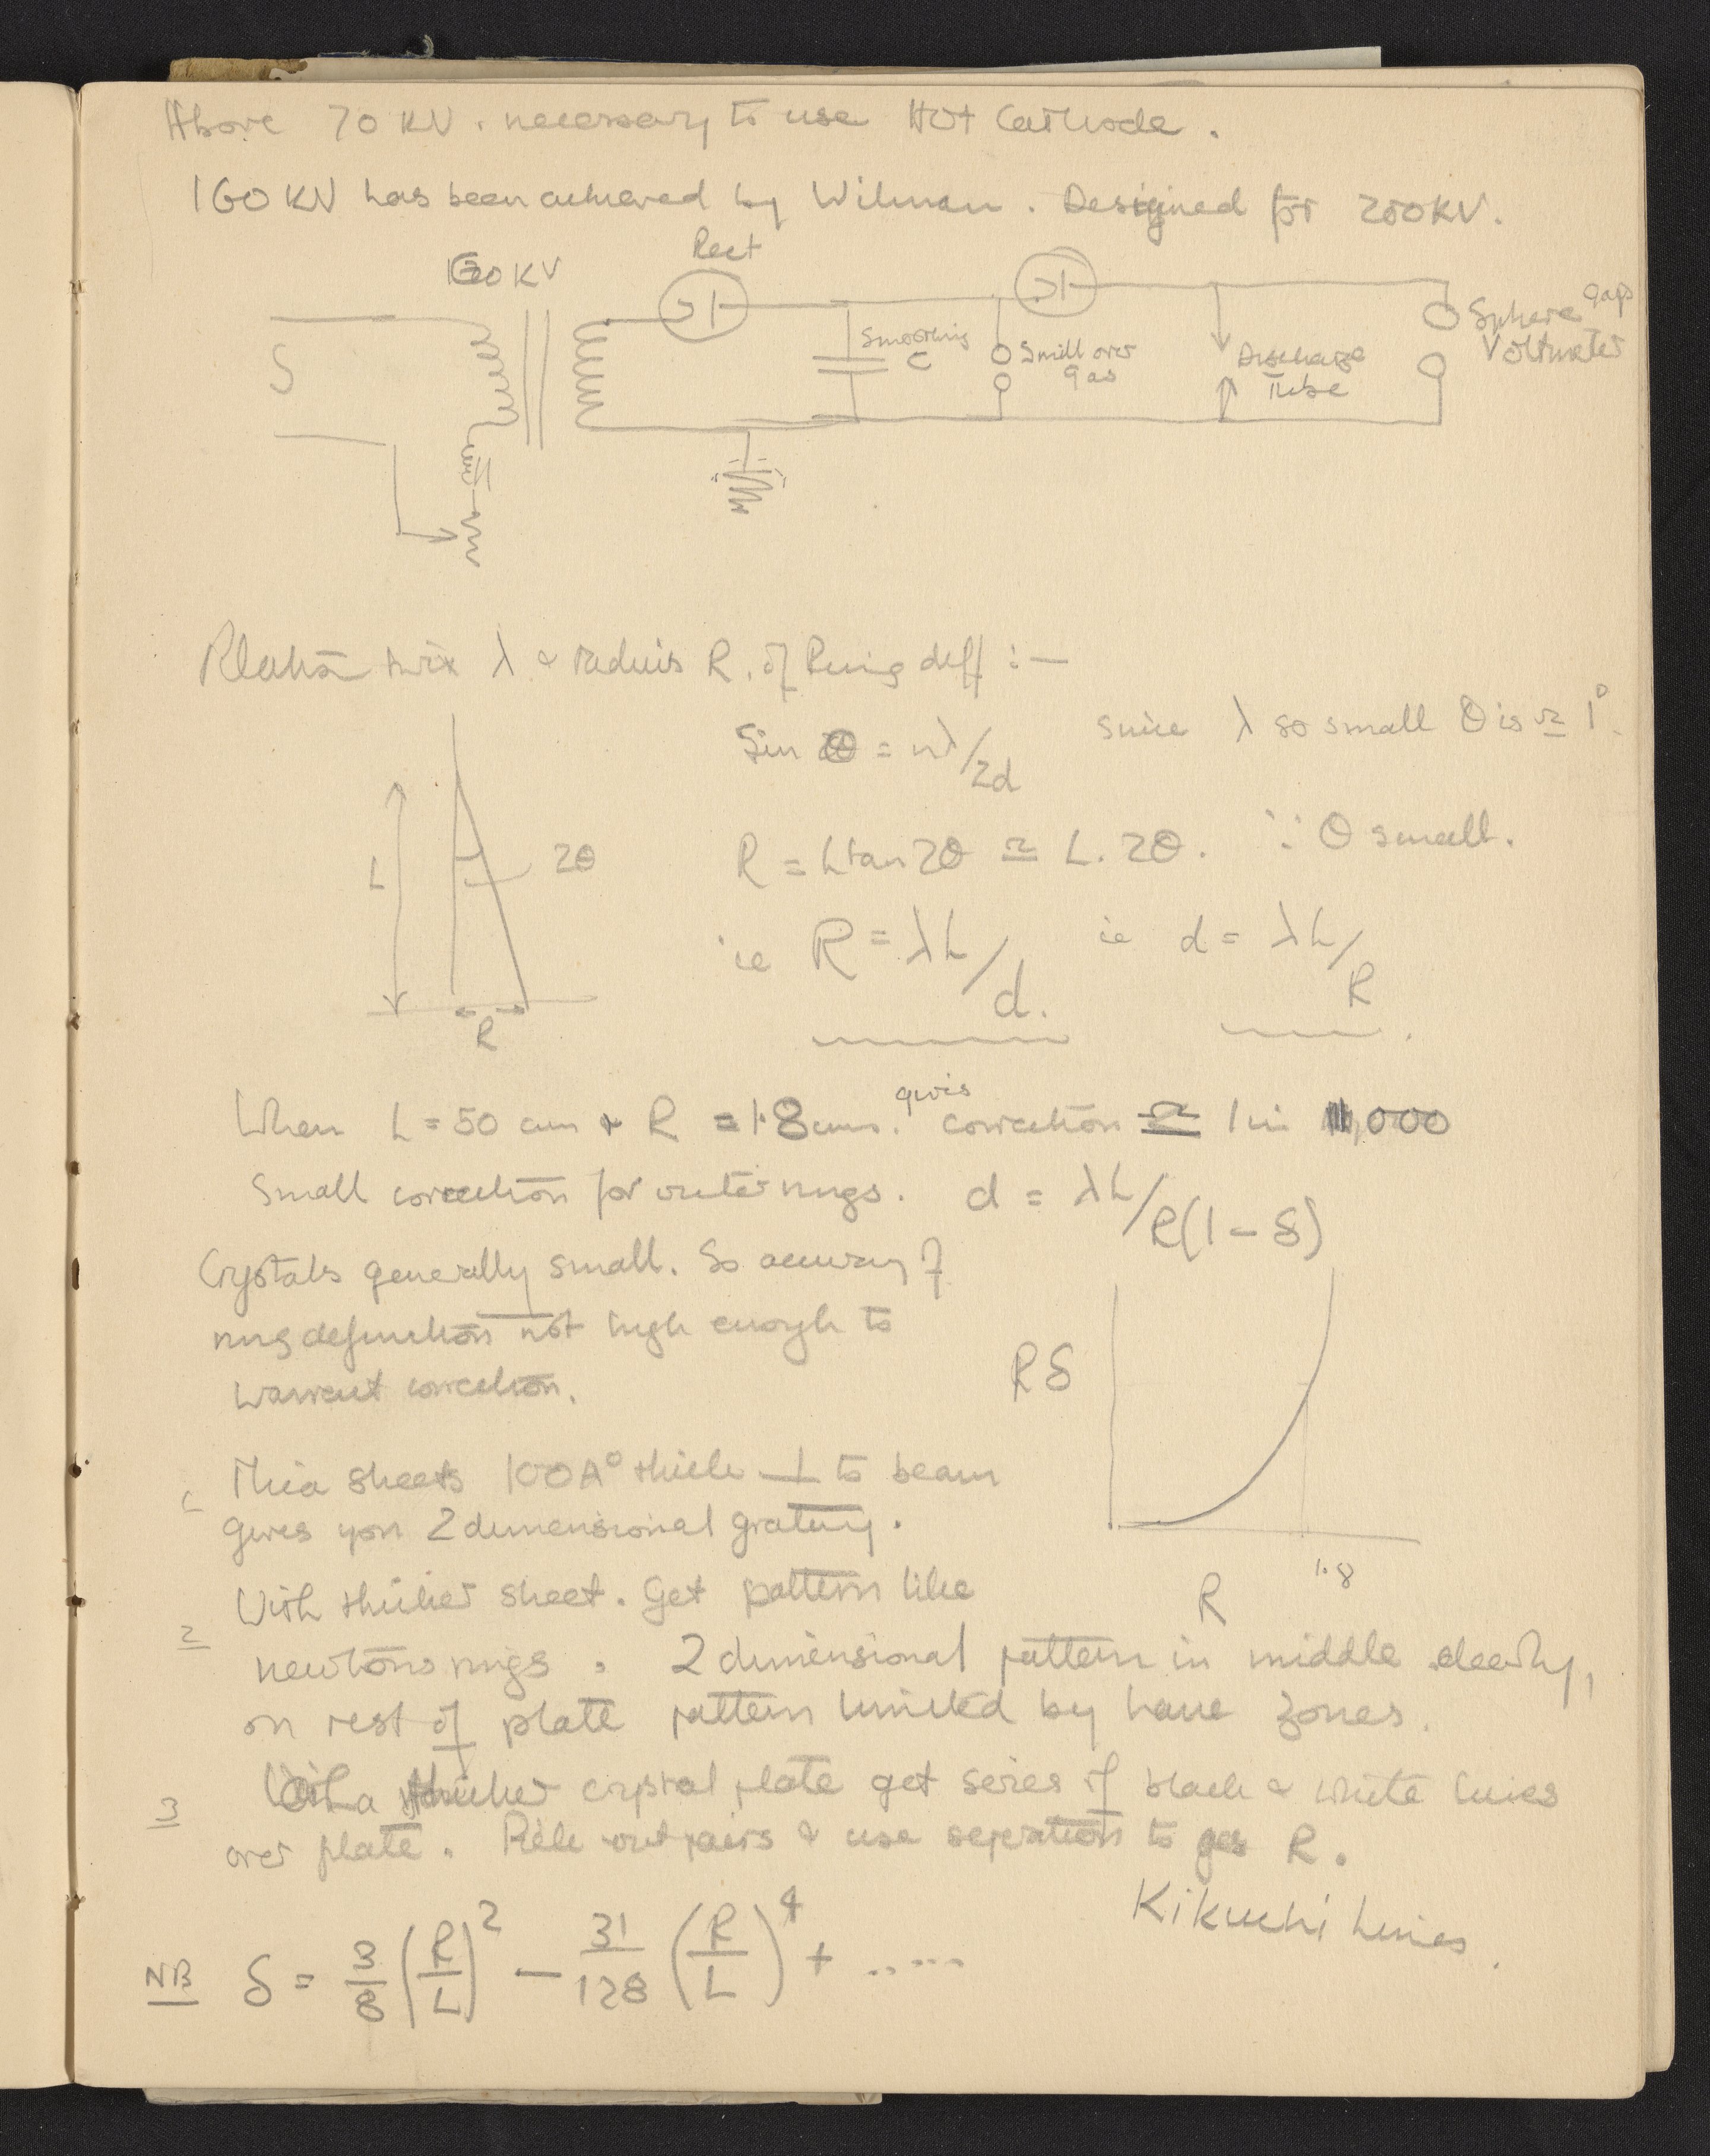 Above 70 KV. necessary to use Hot Cathode.
160 KV has been achieved by Wilman. Designed for 200KV.
Rect
KV
Smoothing
C
Spill over
gap
Discharge
Tube
Sphere gaps
Voltmeter
S
Relation twix λ & radius R. of Ring diff :—
Sin θ = nλ/2d since λ so small θ is ≃ 1°.
L
2θ
R = L tan 2θ ≃ L. 2θ. ∵ θ small.
ie R = λL/d. ie d = λL/R
R
When L = 50 cm & R = 1.8 cms. gives correction ≃ 1 in 1,000
Small correction for outer rings. d = λL/R(1 – δ)
Crystals generally small. So accuracy of
ring definition not high enough to
warrant correction.
Rδ
R
1.8
1 Mica sheets 100A° thick ⊥ to beam
gives you 2 dimensional grating.
2 With thicker sheet. Get pattern like
newtons rings. 2 dimensional pattern in middle clearly,
on rest of plate pattern limited by Laue zones.
3 With a thicker crystal plate get series of black & white lines
over plate. Pick out pairs & use seperation to get R.
Kikuchi Lines.
NB δ = 3/8 (R/L)² – 31/128 (R/L)⁴ + .....